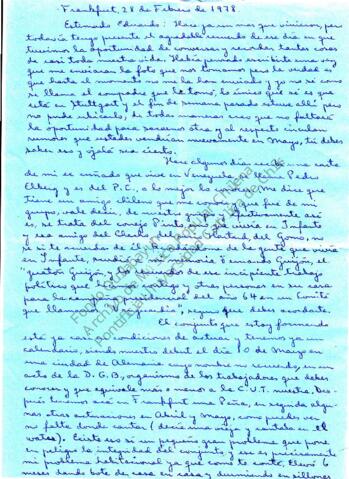 Frankfurt, 28 de Febrero de 1978.
Estimado Eduardo: Hace ya un mes que vinieron, pero
todavía tengo presente el agradable recuerdo de ese día en que
tuvimos la oportunidad de conversar y recordar tantas cosas
de casi toda nuestra vida. Había pensado escribirte una vez
que me enviaran la foto que nos tomaron pero la verdad es
que hasta el momento no me la han enviado, y yo no sé como
se llama el compadre que la tomó, lo único que sé es que
está en Stuttgart y el fin de semana pasado estuve allí pero
no pude ubicarlo, de todas maneras creo que no faltará
la oportunidad para sacarnos otra y al respecto circulan
rumores que ustedes vendrían nuevamente en Mayo, tú debes
saber eso y ojalá sea cierto.
Hace algunos días recibí una carta
de mi ex cuñado que vive en Venezuela, se llama Pedro
y es del P.C., a lo mejor lo me dice que
tiene un amigo chileno que fue de mi
grupo, vale decir, de nuestro efectivamente así
es, se trata del conejo que vivía en Infante
y era amigo del Chocho, Central del Gomo, no
sé si te acuerdas de él de la gente que vivía
en Infante, murió Fernando Guijón, el
"guatón Guijón", y de ese incipiente trabajo
político que y otras personas en su casa
para la campaña presidencial del año 64 en un Comité
que llamamos según debes acordarte.
El conjunto que estoy formando
está ya casi en condiciones de actuar y tenemos ya un
calendario, siendo nuestro debut el día 10 de Marzo en
una ciudad de Alemania cuyo nombre no recuerdo, en un
acto de la D.G.B, organismo de los trabajadores que debes
conocer y que equivale más o menos a la C.U.T. nuestra, des-
pués tenemos acá en Frankfurt una Peña, en seguida algu-
nas otras actuaciones en Abril y Mayo, como puedes ver
no falta donde cantar (decía una vieja y cantaba en el
water). Existe eso si un pequeño gran problema que pone
en peligro la integridad del conjunto, y ese es precisamente
mi problema habitacional ya que como te conté, llevo 6
meses dando bote de casa en casa y durmiendo en sillones